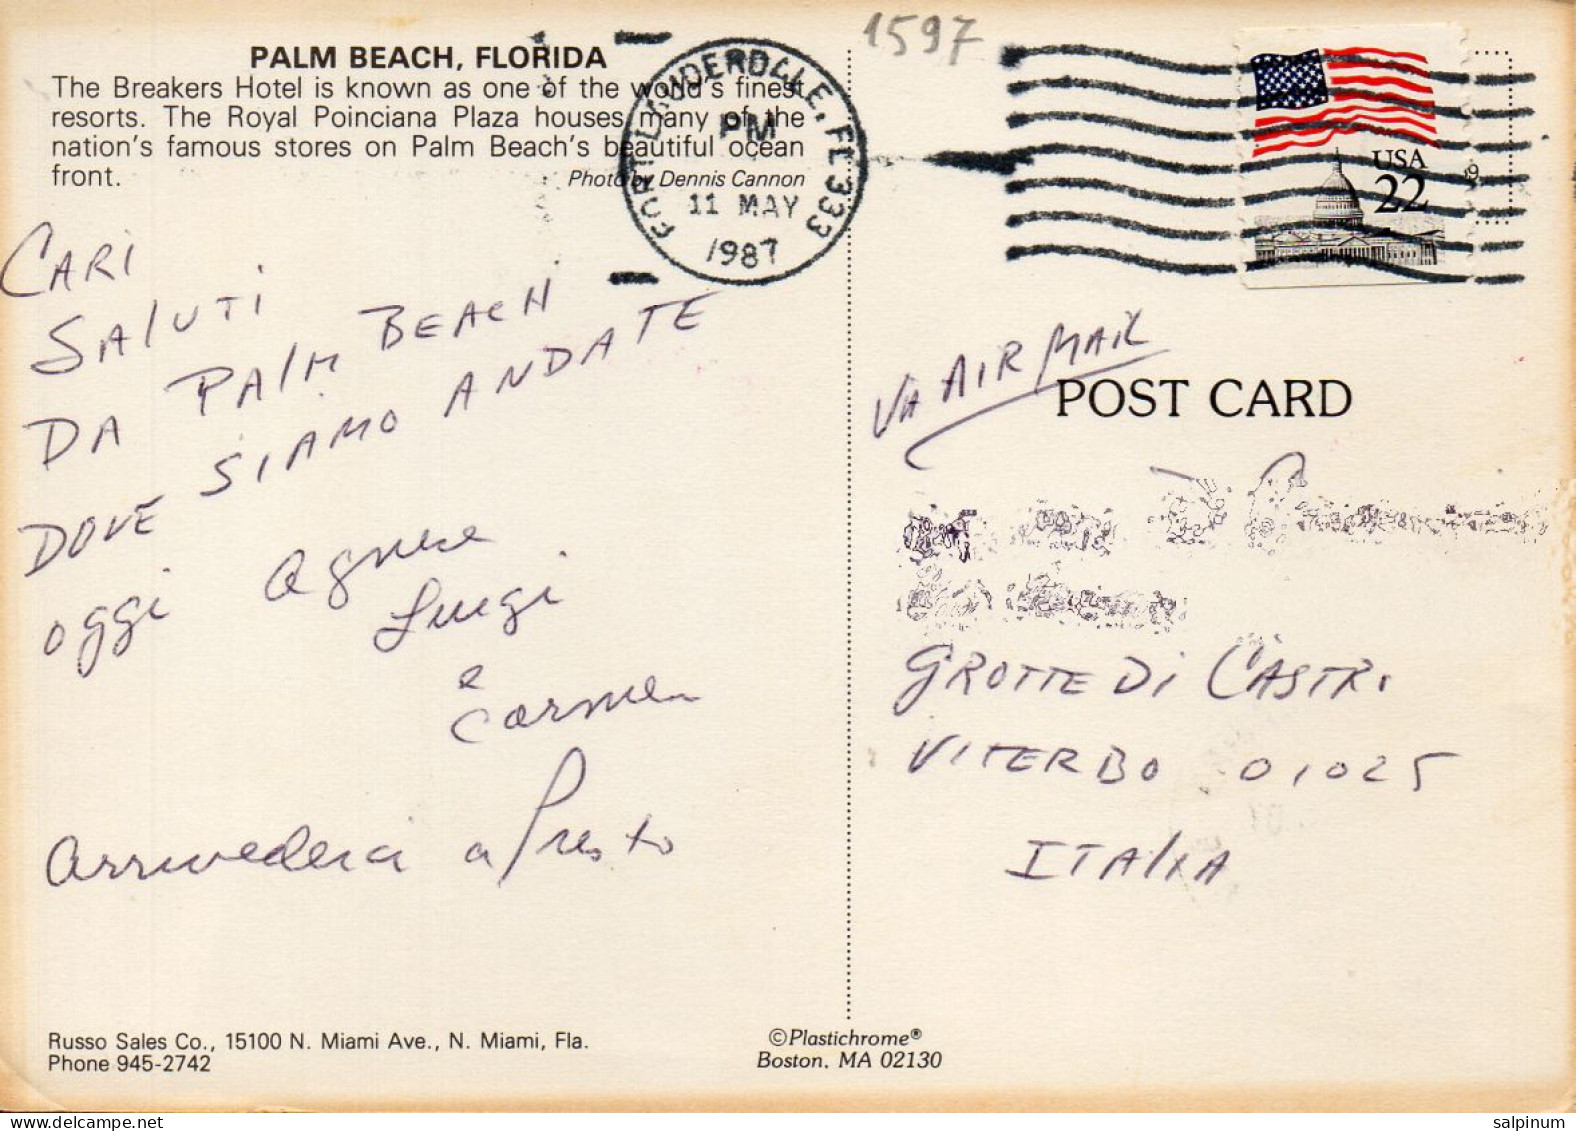 PALM BEACH, FLORIDA
The Breakers Hotel is known as one of the world's finest
resorts. The Royal Poinciana Plaza houses many of the
nation's famous stores on Palm Beach's beautiful ocean
front.
Photo by Dennis Cannon
FORT LAUDERDALE, FL 333
PM
11 MAY
1987
1597
USA
22
CARI
SALUTI
DA PALM BEACH
DOVE SIAMO ANDATE
oggi Agnese
Luigi
e
Carmen
Arrivederci a Presto
VIA AIR MAIL
POST CARD
GROTTE DI CASTR.
VITERBO 01025
ITALIA
Russo Sales Co., 15100 N. Miami Ave., N. Miami, Fla.
Phone 945-2742
©Plastichrome®
Boston, MA 02130
salpinum